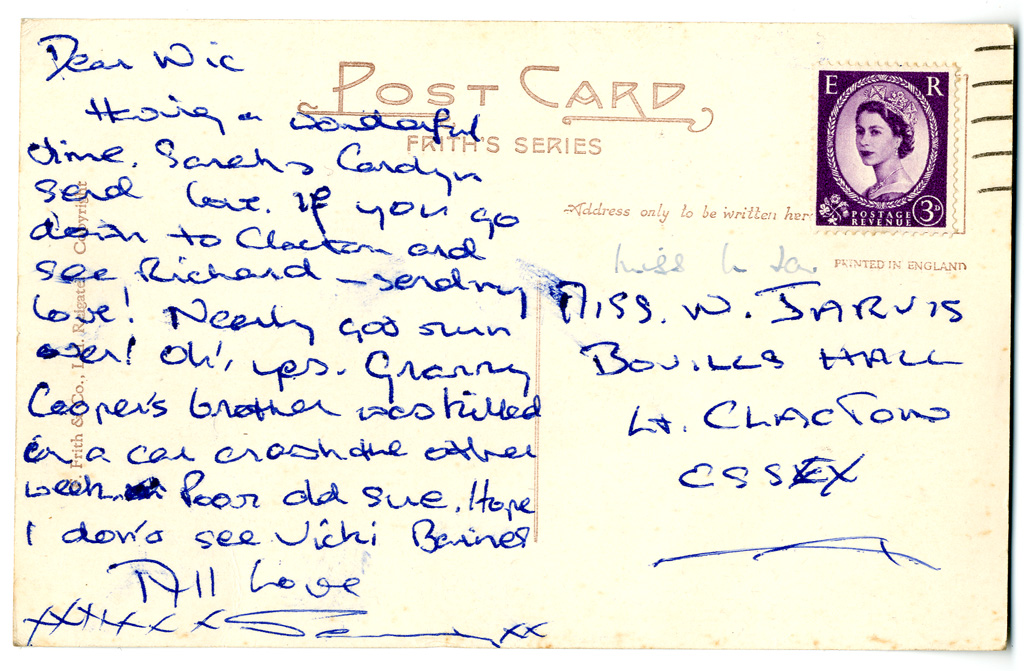 Dear Wic
Having a wonderful
time. Sarah & Carolyn
send love. If you go
down to Clacton and
see Richard – send my
love! Nearly got run
over! Oh!, yes. Granny
Cooper's brother was killed
in a car crash the other
week. Poor old Sue. Hope
I don't see Vicki Baines
All Love
xxxxxx x
xx
POST CARD
FRITH'S SERIES
Address only to be written her
E R
POSTAGE
REVENUE
3D
PRINTED IN ENGLAND
Miss W Jar
MISS. W. JARVIS
BOVILLS HALL
Lt. CLACTON
ESSEX
F. Frith & Co., Ltd. Reigate Copyright